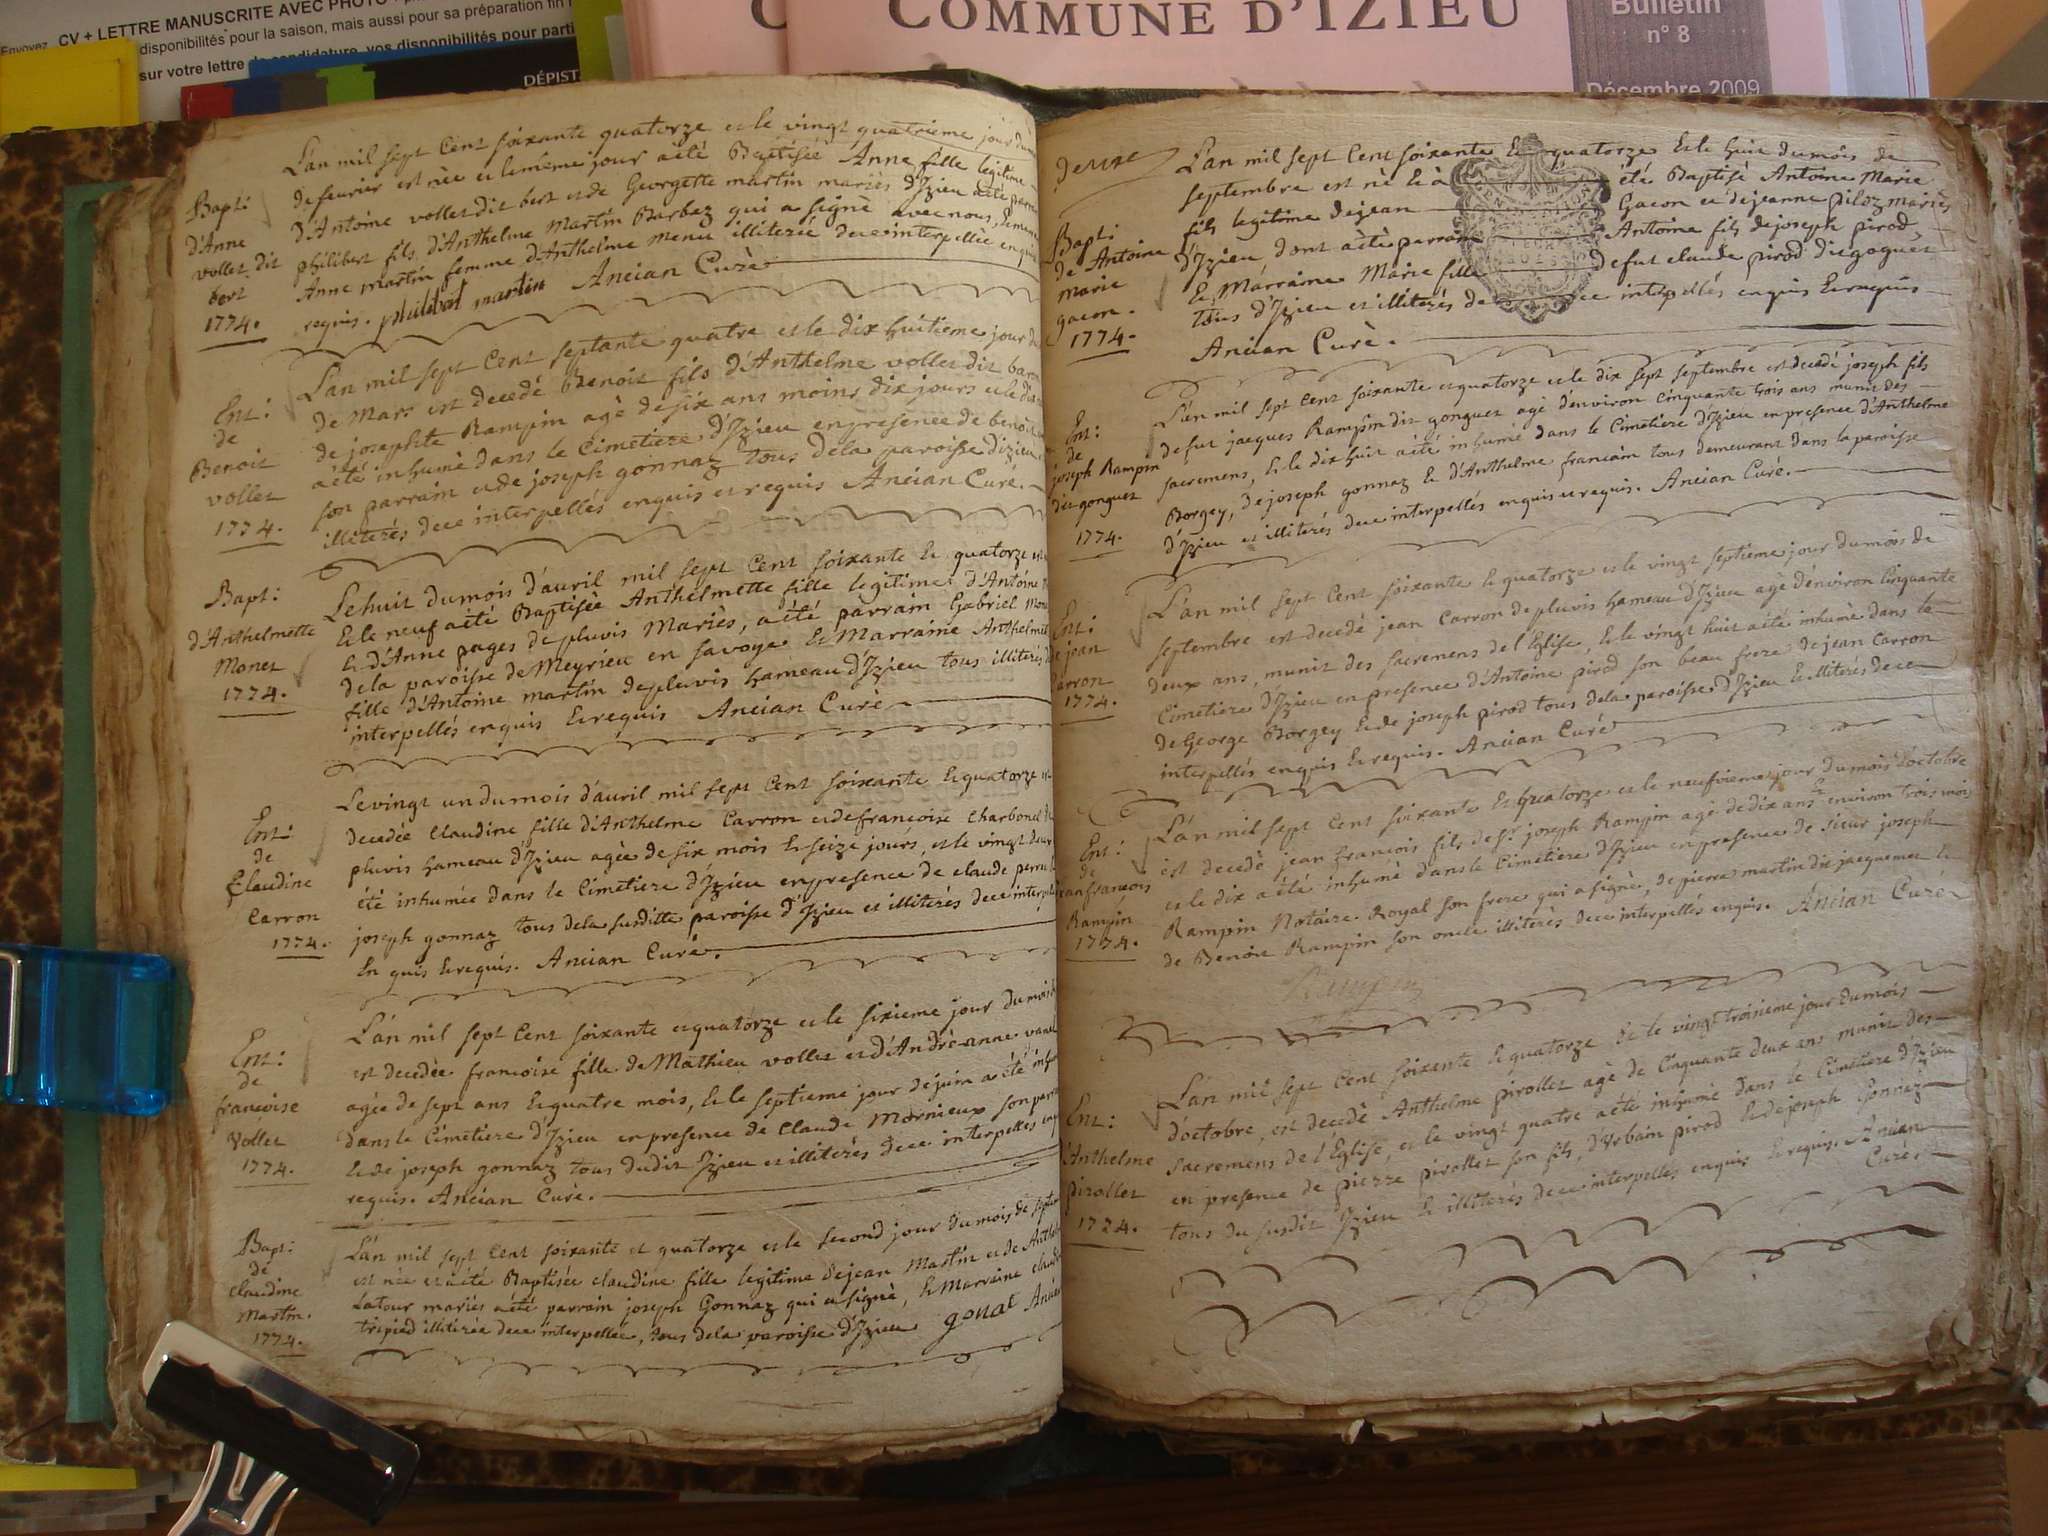 CV + LETTRE MANUSCRITE AVEC PHOTO
Envoyez
disponibilités pour la saison, mais aussi pour sa préparation fin
sur votre lettre de candidature, vos disponibilités pour parti
DÉPIST
COMMUNE D'IZIEU
Bulletin
n° 8
Décembre 2009
Bapt:
d'Anne
vollet dit
bert
1774.
L'an mil sept Cent soixante quatorze et le vingt quatrieme jour du
de fevrier est née et le même jour a été Baptisée Anne fille legitime
d'Antoine vollet dit bert et de Georgette martin mariés d'Izieu a été
philibert fils d'Anthelme Martin Barbaz qui a signé avec nous,
Anne martin femme d'Anthelme menu illiterée de ce interpellée
requis. philibert martin Ancian Curé
Ent:
de
Benoit
vollet
1774.
L'an mil sept Cent septante quatre et le dix huitieme jour
de Mars est decedé Benoit fils d'Anthelme vollet dit
de josephte Rampin agé de six ans moins dix jours et le
a été inhumé dans le Cimetiere d'Izieu en presence de benoit
son parrain et de joseph gonnaz tous de la paroisse d'izieu
illiterés de ce interpellés enquis et requis Ancian Curé.
Bapt:
d'Anthelmette
Monet
1774.
Le huit du mois d'auril mil sept Cent soixante et quatorze est
et le neuf a été Baptisée Anthelmette fille legitime d'Antoine
et d'Anne pages de pluvis Mariés, a été parrain Gabriel
de la paroisse de Meyrieu en savoye et Marraine
fille d'Antoine martin de pluvis hameau d'Izieu tous illiterés
interpellés enquis et requis Ancian Curé
Ent:
de
Claudine
Carron
1774.
Le vingt un du mois d'auril mil sept Cent soixante et quatorze est
decedée claudine fille d'Anthelme Carron et de francoise charbonel
pluvis hameau d'Izieu agée de six mois et seize jours, et le vingt deux
été inhumée dans le Cimetiere d'Izieu en presence de claude
joseph gonnaz tous de la susditte paroisse d'Izieu et illiterés de ce
En quis et requis. Ancian Curé.
Ent:
de
francoise
Vollet
1774.
L'an mil sept Cent soixante et quatorze et le sixieme jour du mois
est decedée francoise fille de Mathieu vollet et d'Andréanne
agée de sept ans et quatre mois, et le septieme jour de juin a été
dans le Cimetiere d'Izieu en presence de Claude Mornieux son
et de joseph gonnaz tous dudit Izieu et illiterés de ce interpellés
requis. Ancian Curé.
Bapt:
de
claudine
Martin.
1774.
L'an mil sept Cent soixante et quatorze et le second jour du mois de
est née et a été Baptisée claudine fille legitime de jean Martin et de
Latour mariés a été parrain joseph Gonnaz qui a signé, et Marraine
tripied illiterée de ce interpellée, tous de la paroisse d'Izieu gonat
Bapt:
de Antoine
Marie
gacon.
1774.
L'an mil sept Cent soixante et quatorze et le huit du mois de
septembre est né et a été Baptisé Antoine Marie
fils legitime de jean Gacon et de jeanne piloz mariés
d'Izieu, dont a été parrain Antoine fils de joseph pirod
et Marraine Marie fille defut claude pirod
tous d'Izieu et illiterés de ce interpellés enquis et requis
Ancian Curé.
Ent:
de
joseph Rampin
dit gonguet
1774.
L'an mil sept Cent soixante et quatorze et le dix sept septembre est decedé joseph fils
defut jacques Rampin dit gonguet agé d'environ Cinquante trois ans munit des
sacremens, et le dix huit a été inhumé dans le Cimetiere d'Izieu en presence d'Anthelme
Borgey, de joseph gonnaz et d'Anthelme francain tous demeurant dans la paroisse
d'Izieu et illiterés de ce interpellés enquis et requis. Ancian Curé.
Ent:
de jean
Carron
1774.
L'an mil sept Cent soixante et quatorze et le vingt septieme jour du mois de
septembre est decedé jean Carron de pluvis hameau d'Izieu agé d'environ Cinquante
deux ans, munit des sacremens de l'Eglise, et le vingt huit a été inhumé dans le
Cimetiere d'Izieu en presence d'Antoine pirod son beau frere de jean Carron
de George Borgey et de joseph pirod tous de la paroisse d'Izieu et illiterés de ce
interpellés enquis et requis. Ancian Curé
Ent:
de
jean francois
Rampin
1774.
L'an mil sept Cent soixante et quatorze et le neufvieme jour du mois d'octobre
est decedé jean francois fils de Sr. joseph Rampin agé de dix ans et environ trois mois
et le dix a été inhumé dans le Cimetiere d'Izieu en presence de sieur joseph
Rampin Notaire Royal son frere qui a signé, de pierre martin dit jacquemet et
de Benoit Rampin son oncle illiterés de ce interpellés enquis. Ancian Curé
Rampin
Ent:
d'Anthelme
pirollet
1774.
L'an mil sept Cent soixante et quatorze et le vingt troisieme jour du mois
d'octobre, est decedé Anthelme pirollet agé de Cinquante deux ans munit des
sacremens de l'Eglise, et le vingt quatre a été inhumé dans le Cimetiere d'Izieu
en presence de pierre pirollet son fils, d'Urbain pirod et de joseph Gonnaz
tous du susdit Izieu et illiterés de ce interpellés enquis et requis. Ancian
Curé.